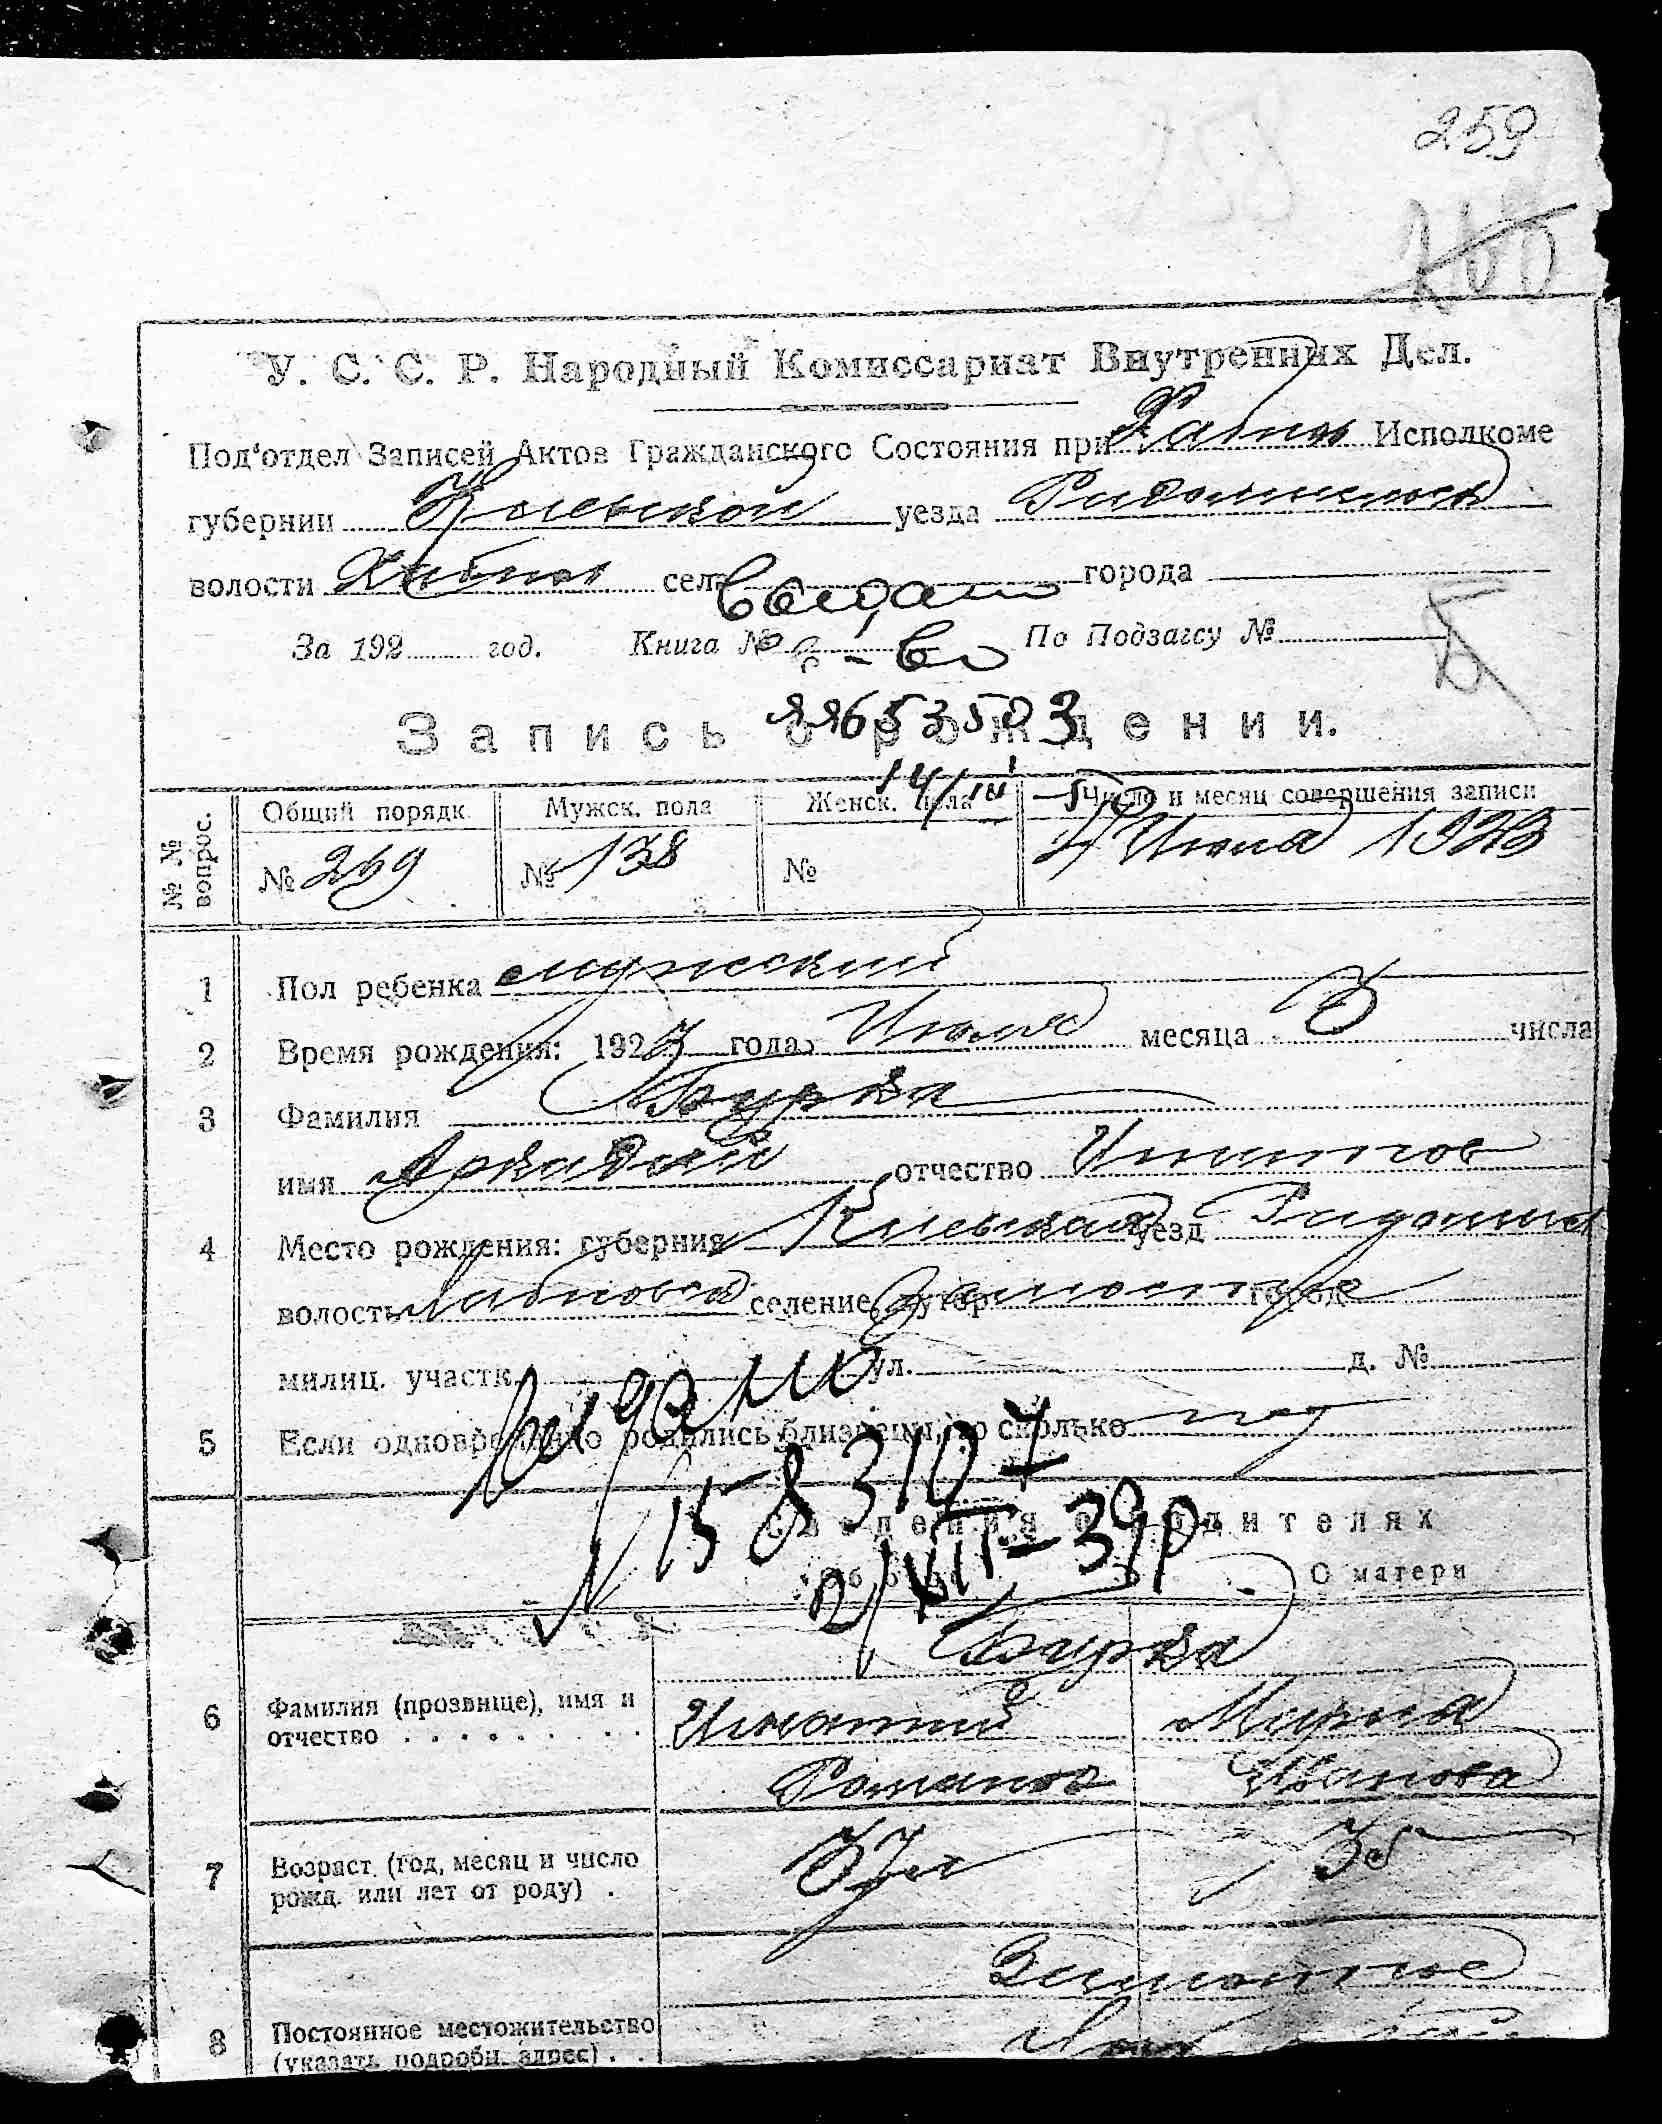 259
У. С. С. Р. Народный Комиссариат Внутренних Дел.
Под‘отдел Записей Актов Гражданского Состояния при Хабнов Исполкоме
губернии Киевской уезда
волости Хабнов села города
За 192 год. Книга № По Подзагсу №
Видано
св-во
Запись о рождении.
№ № вопрос.
Общий порядк. Мужск. пола Женск. пола Число и месяц совершения записи
№ 259 № 138 № Июля 1923
1 Пол ребенка мужский
2 Время рождения: 1923 года Июля месяца 3 числа
3 Фамилия Бурка
имя Аркадий отчество Игнатов
4 Место рождения: губерния Киевская уезд
волость Хабновск селение, хутор Замостье город
милиц. участк. ул. д. №
Видано
5 Если одновременно родились близнецы, то сколько нет
Сведения о родителях
Об отце О матери
VIII-39р
Бурка
6 Фамилия (прозвище), имя и отчество Игнатий Мария
Романов Иванова
7 Возраст (год, месяц и число рожд. или лет от роду) 37 л 35
Замостье
8 Постоянное местожительство
(указать подробн. адрес)